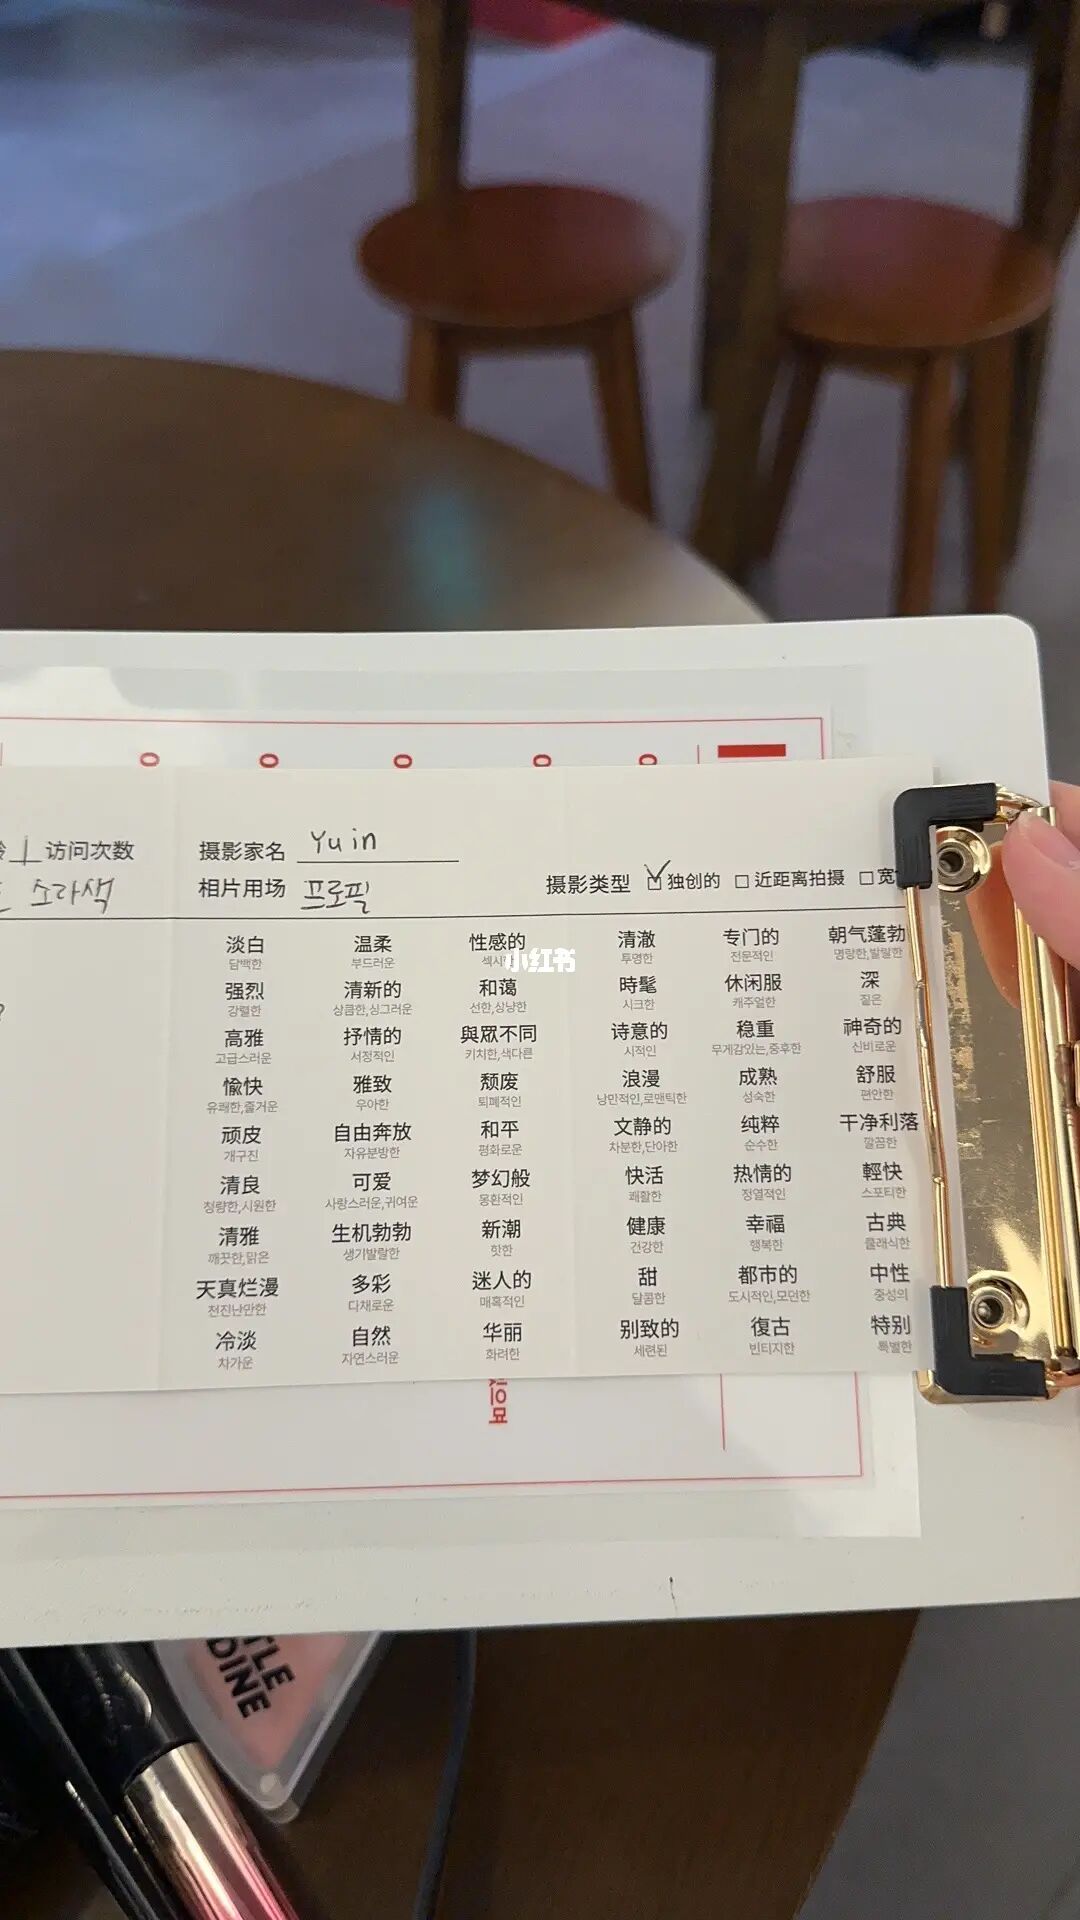 访问次数 摄影家名 Yuin
소라색 相片用场 프로필 摄影类型 独创的 近距离拍摄
淡白 温柔 性感的 清澈 专门的 朝气蓬勃
담백한 부드러운 투명한 전문적인 명랑한,발랄한
小红书
强烈 清新的 和蔼 時髦 休闲服 深
강렬한 상큼한,싱그러운 선한,상냥한 시크한 캐주얼한 짙은
高雅 抒情的 與眾不同 诗意的 稳重 神奇的
고급스러운 서정적인 키치한,색다른 시적인 무게감있는,중후한 신비로운
愉快 雅致 颓废 浪漫 成熟 舒服
유쾌한,즐거운 우아한 퇴폐적인 낭만적인,로맨틱한 성숙한 편안한
顽皮 自由奔放 和平 文静的 纯粹 干净利落
개구진 자유분방한 평화로운 차분한,단아한 순수한 깔끔한
清良 可爱 梦幻般 快活 热情的 輕快
청량한,시원한 사랑스러운,귀여운 몽환적인 쾌활한 정열적인 스포티한
清雅 生机勃勃 新潮 健康 幸福 古典
깨끗한,맑은 생기발랄한 핫한 건강한 행복한 클래식한
天真烂漫 多彩 迷人的 甜 都市的 中性
천진난만한 다채로운 매혹적인 달콤한 도시적인,모던한 중성의
冷淡 自然 华丽 别致的 復古 特别
차가운 자연스러운 화려한 세련된 빈티지한 특별한
있으며